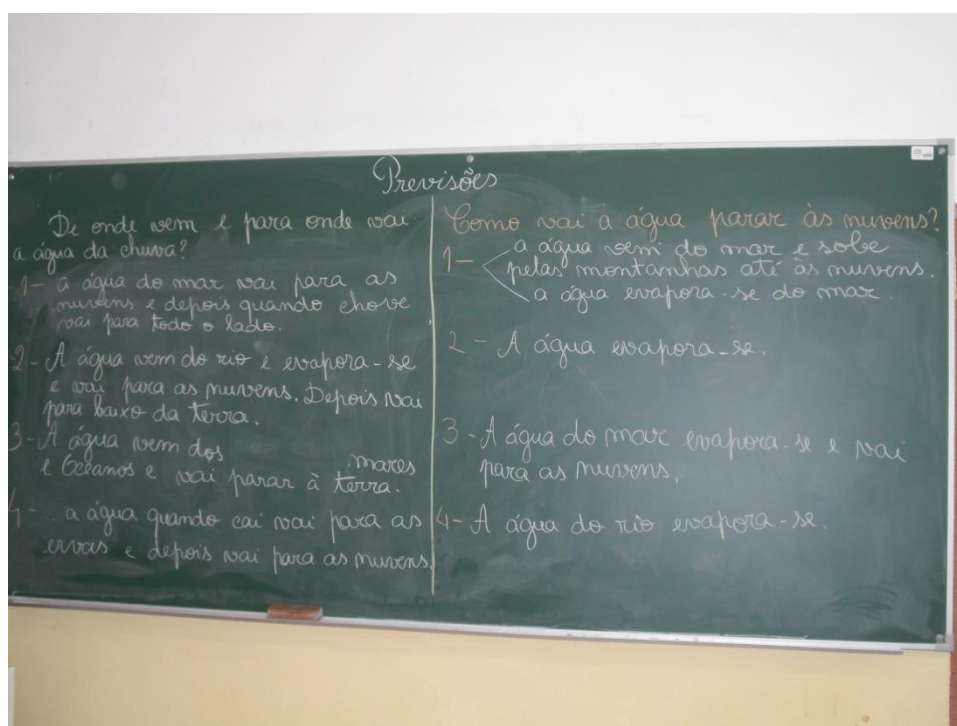 Previsões
De onde vem e para onde vai
a água da chuva?
1- a água do mar vai para as
nuvens e depois quando chove
vai para todo o lado.
2- A água vem do rio e evapora-se
e vai para as nuvens. Depois vai
para baixo da terra.
3- A água vem dos mares
e Oceanos e vai parar à terra.
4- ... a água quando cai vai para as
ervas e depois vai para as nuvens.
Como vai a água parar às nuvens?
1- a água vem do mar e sobe
pelas montanhas até às nuvens.
a água evapora-se do mar.
2- A água evapora-se.
3- A água do mar evapora-se e vai
para as nuvens.
4- A água do rio evapora-se.